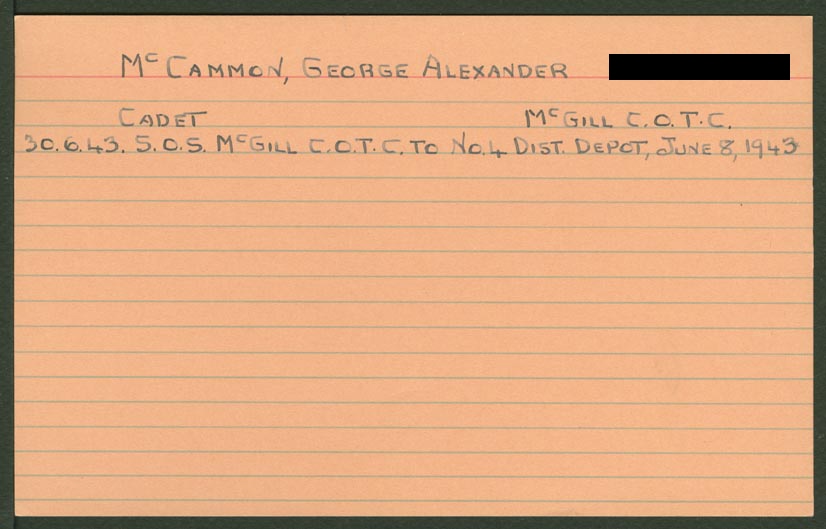 McCAMMON, GEORGE ALEXANDER
CADET McGILL C.O.T.C.
30.6.43. S.O.S. McGILL C.O.T.C. TO No.4 DIST. DEPOT, JUNE 8, 1943